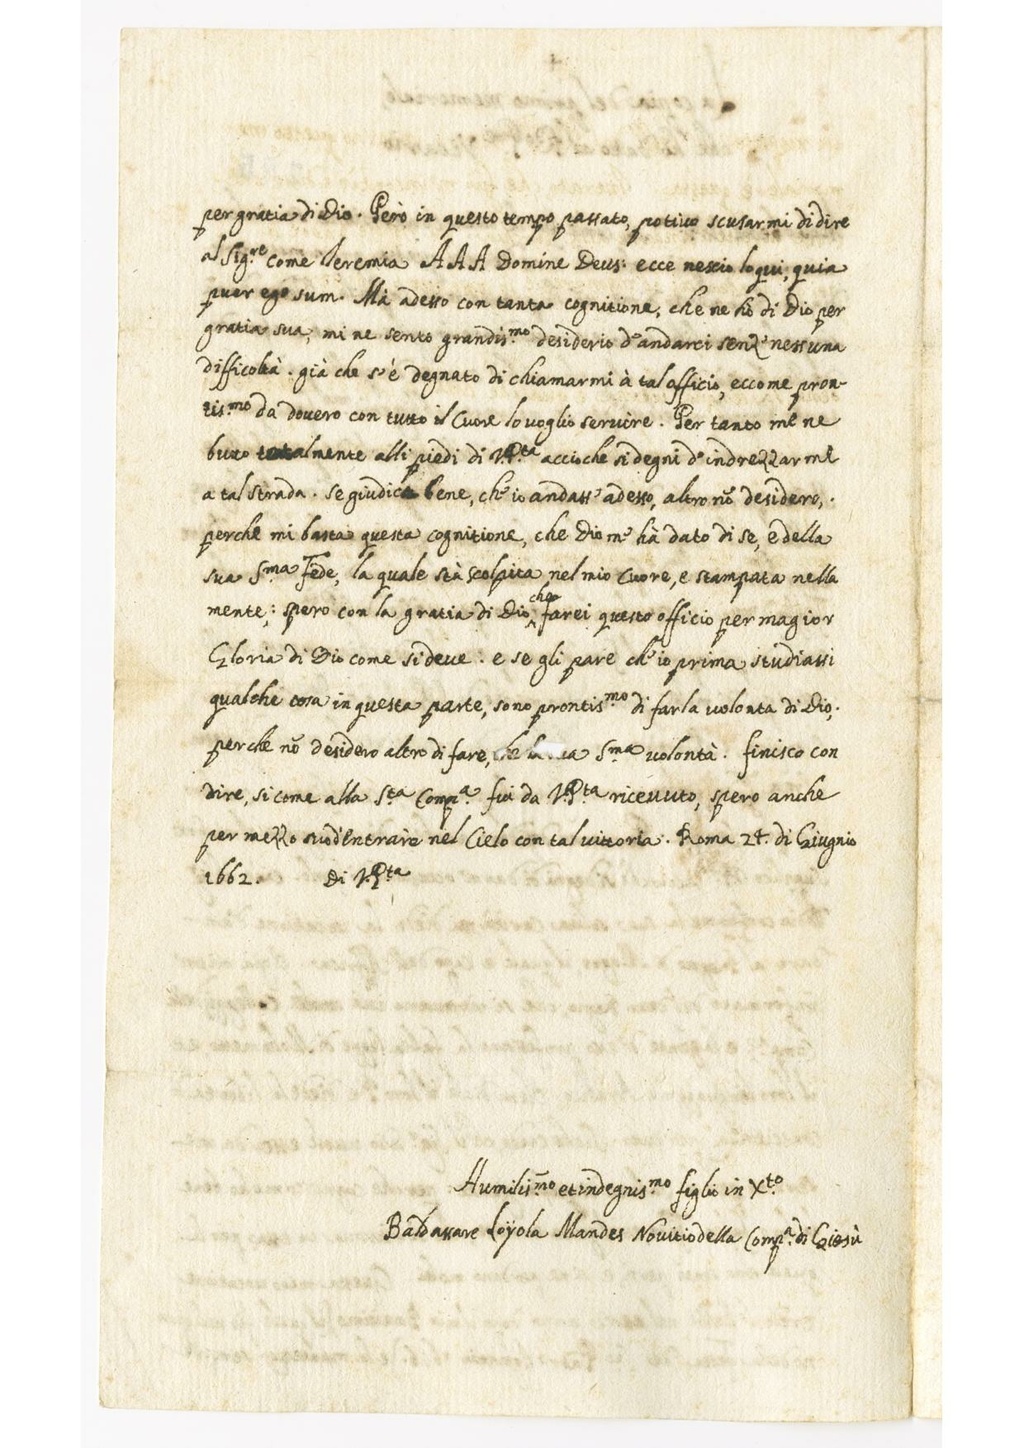 per gratia di Dio. Però in questo tempo passato, potivo scusarmi di dire
al Sig.re come Jeremia AAA Domine Deus. ecce nescio loqui, quia
puer ego sum. Mà adesso con tanta cognitione, che ne hò di Dio per
gratia sua, mi ne sento grandis.mo desiderio d'andarci senz' nessuna
difficoltà. già che s'è degnato di chiamarmi à tal officio, eccome pron-
tis.mo da dovero con tutto il Cuore lo voglio servire. Per tanto mè ne
butto totalmente alli piedi di V.P.tà acciochè si degni d'indrezzarmè
a tal strada. se giudica bene, ch'io andass' adesso, altro nõ desidero,
perche mi basta questa cognitione, che Dio m' hà dato di se, e della
sua S.ma Fede, la quale stà scolpita nel mio Cuore, e stampata nella
mente; spero con la gratia di Dio, che farei questo officio per magior
Gloria di Dio come si deve. e se gli pare ch'io prima studiassi
qualche cosa in questa parte, sono prontis.mo di far la volonta di Dio,
perche nõ desidero altro di fare, che la sua S.ma volontà. finisco con
dire, si come alla S.ta Comp.a fui da V.P.tà ricevuto, spero anche
per mezzo suo d'entrare nel Cielo con tal vittoria. Roma 24. di Giugnio
1662. Di V.P.tà
Humilis.mo et indegnis.mo figlio in X.to
Baldassare Loyola Mandes Novitio della Comp.a di Giesù